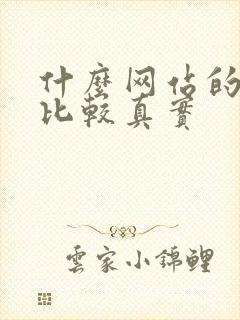 什麼网佔的
比較真實
雲家小錦鲤